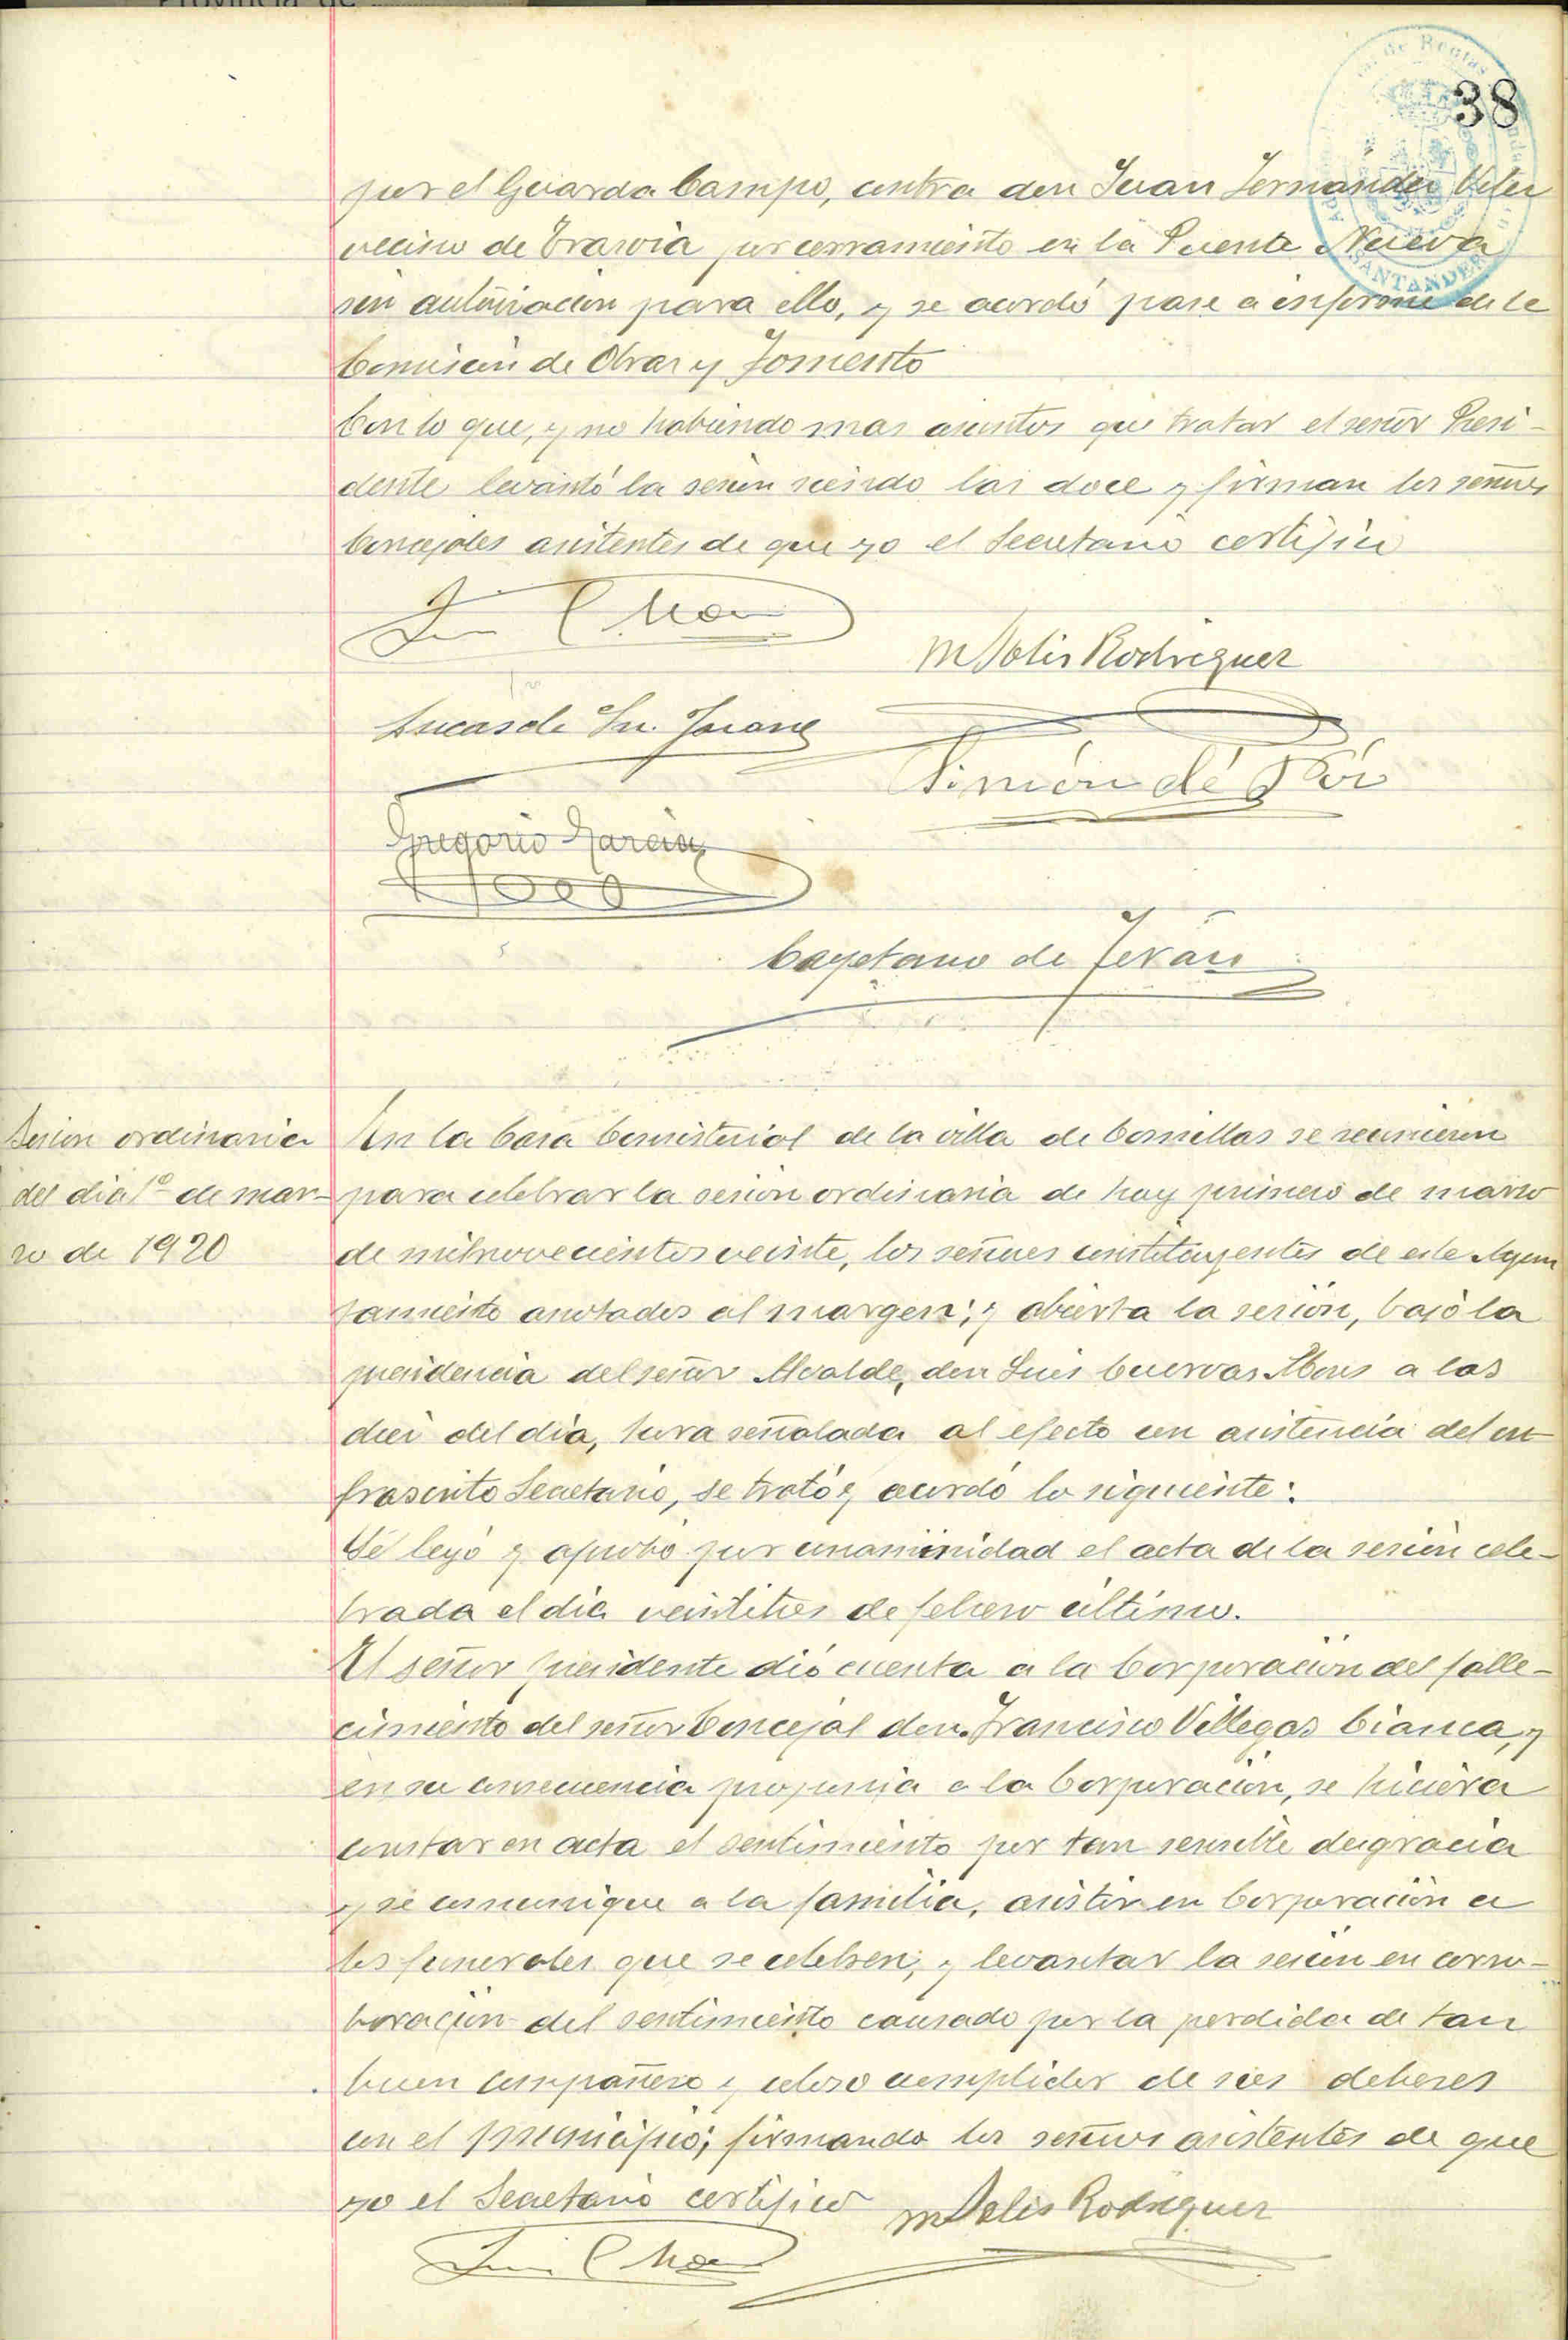 Provincia de
38
por el Guarda Campo, contra don Juan Fernández
vecino de Trasvia por cerramiento en la Fuente Nueva
sin autorización para ello, y se acordó pase a informe de la
Comisión de Obras y Fomento
Con lo que, y no habiendo mas asuntos que tratar el señor Presi-
dente levantó la sesión siendo las doce y firman los señores
Concejales asistentes de que yo el Secretario certifico
M Solis Rodriguez
Lucas de
Simón de
Gregorio Garcia
Cayetano de Terán
Sesión ordinaria
del dia 1º de mar-
zo de 1920
En la Casa Consistorial de la villa de Comillas se reunieron
para celebrar la sesión ordinaria de hoy primero de marzo
de milnovecientos veinte, los señores constituyentes de este Ayun
tamiento anotados al margen; y abierta la sesión, bajo la
presidencia del señor Alcalde, don Luis Cuervas Mons a las
diez del dia, hora señalada al efecto con asistencia del in
frascrito Secretario, se trató y acordó lo siguiente:
Se leyó y aprobó por unanimidad el acta de la sesión cele-
brada el dia veintitres de febrero último.
El señor presidente dió cuenta a la Corporación del falle-
cimiento del señor Concejal don Francisco Villegas Cianca, y
en su consecuencia proponia a la Corporación, se hiciera
constar en acta el sentimiento por tan sensible desgracia
y se comunique a la familia, asistir en Corporación a
los funerales que se celebren, y levantar la sesión en corro-
boración del sentimiento causado por la perdida de tan
buen compañero y celoso cumplidor de sus deberes
con el municipio; firmando los señores asistentes de que
yo el Secretario certifico
M Solis Rodriguez